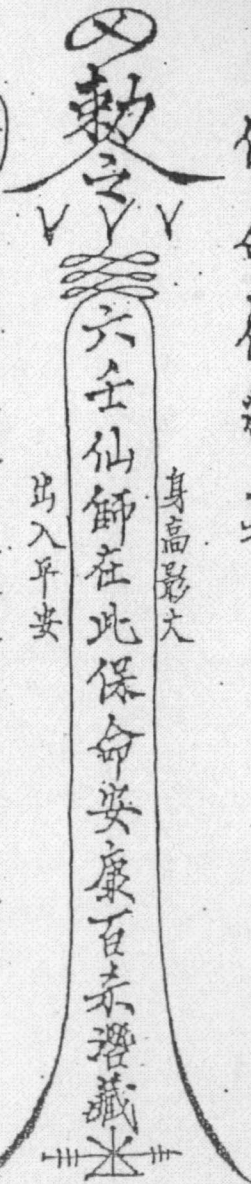 敕令
六壬仙師在此保命安康百杀潛藏
身高影大
出入平安